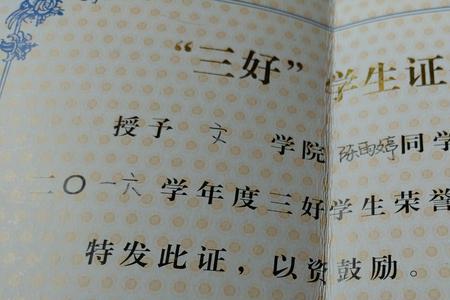 “三好”学生证
授予 文 学院 陈雨婷同学
二〇一六学年度三好学生荣誉
特发此证，以资鼓励。